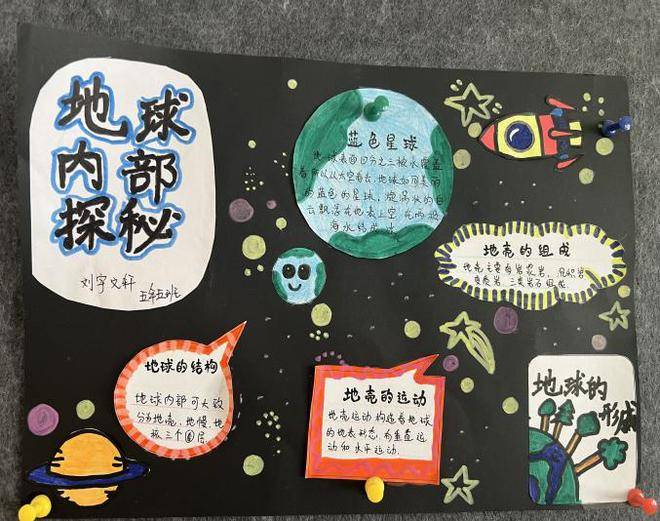 地球
内部
探秘
刘宇文轩
五年五班
蓝色星球
地球表面四分之三被水覆盖
着所以从太空看去,地球如同美丽
的蓝色的星球,旋涡状的白
云飘浮在地表上空
海水
地壳的组成
地壳主要有岩浆岩、沉积岩
变质岩、三类岩石组成.
地球的结构
地球内部可大致
分为地壳、地幔、地
核三个圈层.
地壳的运动
地壳运动构造着地球
的地表形态,有垂直运
动和水平运动.
地球的
形成